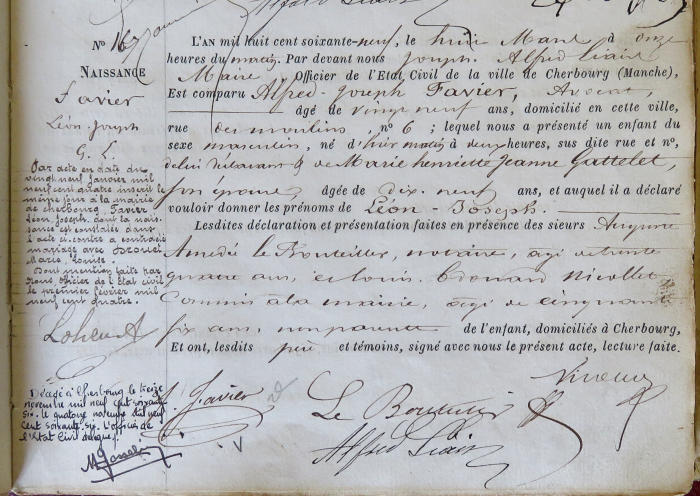 N° 167
NAISSANCE
Favier
Léon-Joseph
G. L.
Par acte en date du
vingt neuf janvier mil
neuf cent quatre inscrit le
même jour à la mairie
de Cherbourg Favier
Léon, Joseph, dont la nais-
sance est constatée dans
l'acte ci-contre a contracté
mariage avec
Marie, Louise.
Dont mention faite par
Nous, Officier de l'Etat civil
le premier février mil
neuf cent quatre.
Décédé à Cherbourg le treize
novembre mil neuf cent soixante
six. le quatorze novembre mil neuf
cent soixante six. L'officier de
l'Etat Civil délégué.
L'AN mil huit cent soixante-neuf, le huit Mars à onze
heures du matin. Par devant nous Joseph Alfred Liais
Maire, Officier de l'Etat Civil de la ville de Cherbourg (Manche),
Est comparu Alfred-Joseph Favier, Avocat,
âgé de vingt neuf ans, domicilié en cette ville,
rue des moulins n° 6 ; lequel nous a présenté un enfant du
sexe masculin, né d'hier matin à deux heures, sus dite rue et n°,
de lui déclarant & de Marie henriette Jeanne Gattelet,
son épouse âgée de dix-neuf ans, et auquel il a déclaré
vouloir donner les prénoms de Léon-Joseph.
Lesdites déclaration et présentation faites en présence des sieurs Auguste
Amedée le Bouteiller, notaire, agé de trente
quatre ans, et Louis Edouard Nicollet
Commis à la mairie, agé de cinquante
six ans, non parents de l'enfant, domiciliés à Cherbourg,
Et ont, lesdits père et témoins, signé avec nous le présent acte, lecture faite.
A. Favier
Le Bouteiller
Alfred Liais